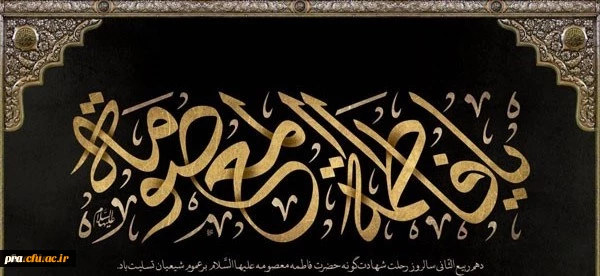 یا فاطمة المعصومة
علیها السلام
دهم ربیع الثانی سالروز رحلت شهادت گونه حضرت فاطمه معصومه علیها السّلام بر عموم شیعیان تسلیت باد.
pra.cfu.ac.ir